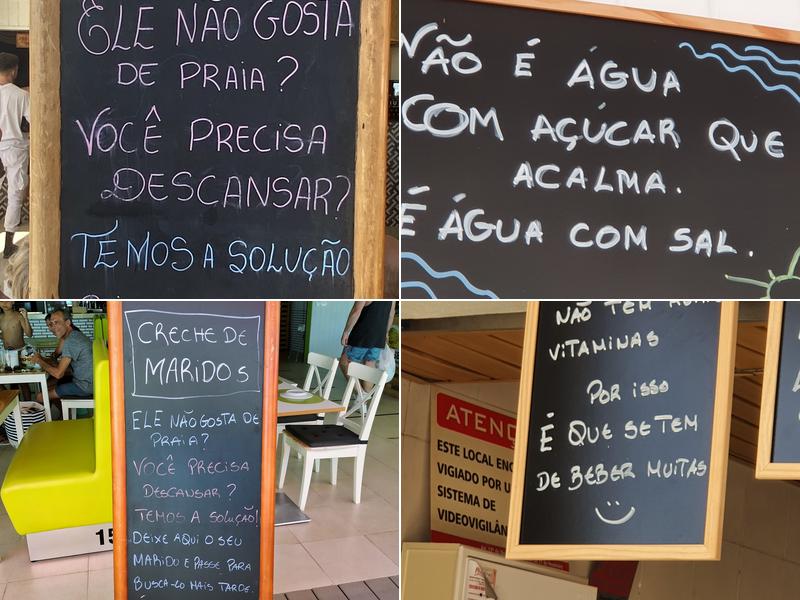 ELE NÃO GOSTA
DE PRAIA?
VOCÊ PRECISA
DESCANSAR?
TEMOS A SOLUÇÃO
NÃO É ÁGUA
COM AÇÚCAR QUE
ACALMA.
É ÁGUA COM SAL.
CRECHE DE
MARIDOS
ELE NÃO GOSTA DE
PRAIA?
VOCÊ PRECISA
DESCANSAR?
TEMOS A SOLUÇÃO!
DEIXE AQUI O SEU
MARIDO E PASSE PARA
BUSCA-LO MAIS TARDE.
15
NÃO TEM
VITAMINAS
POR ISSO
É QUE SE TEM
DE BEBER MUITAS
ATENÇ
ESTE LOCAL ENC
VIGIADO POR U
SISTEMA DE
VIDEOVIGILÂN